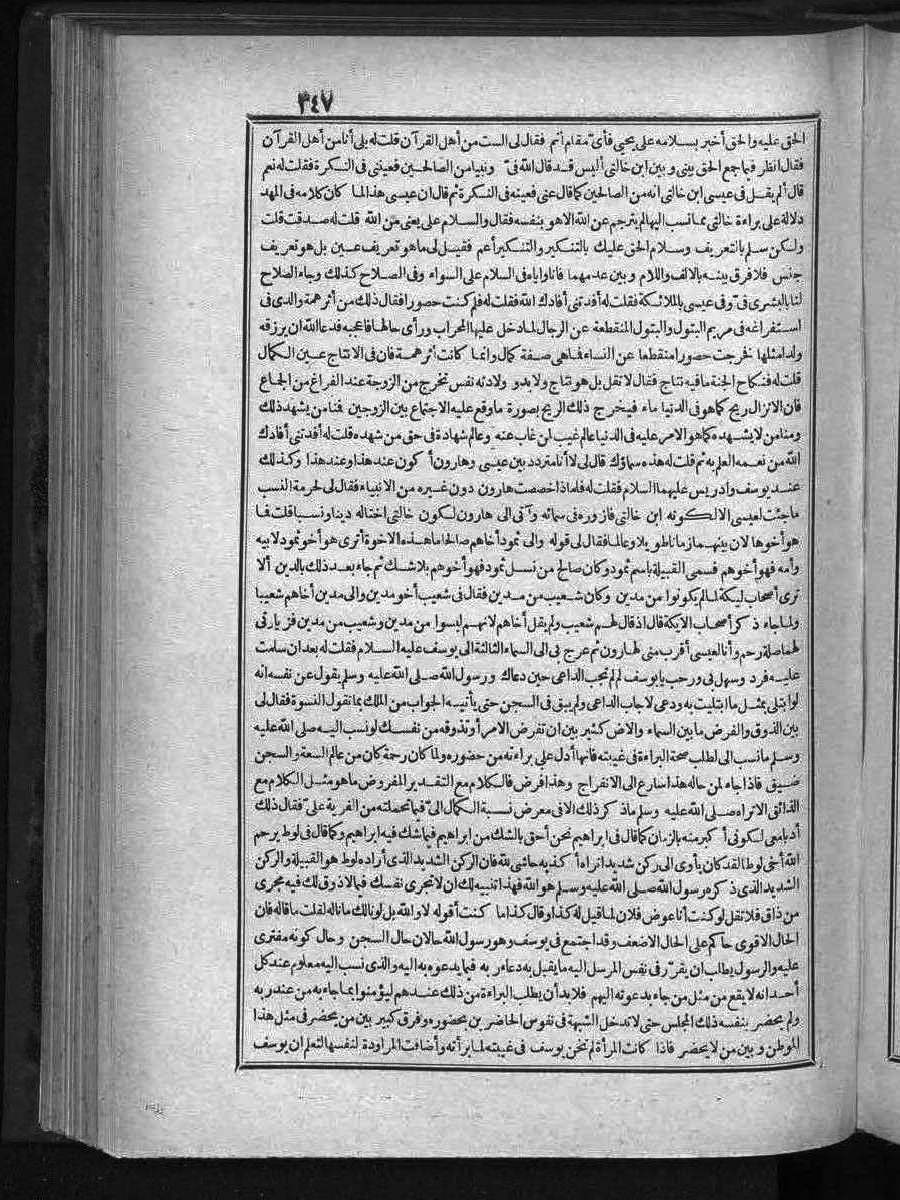 ٣٤٧
الحق عليه والحق أخبر بسلامه على يحيى فأىّ مقام أتم فقال لى ألست من أهل القرآن قلت له بلى أنا من أهل القرآن
فقال انظر فيما جمع الحق بينى وبين ابن خالتى أليس قد قال الله فىّ ونبيا من الصالحين فعيننى فى النكرة فقلت له نعم
قال ألم يقل فى عيسى ابن خالتى انه من الصالحين كما قال عنى فعينه فى النكرة ثم قال ان عيسى هذا لما كان كلامه فى المهد
دلالة على براءة خالتى مما نسب اليها لم يترجم عن الله الا هو بنفسه فقال والسلام على يعنى من الله قلت له صدقت قلت
ولكن سلم بالتعريف وسلام الحق عليك بالتنكير والتنكير أعم فقيل لى ما هو تعريف عين بل هو تعريف
جنس فلا فرق بينه بالالف واللام وبين عدمهما فانا واياه فى السلام على السواء وفى الصلاح كذلك وجاء الصلاح
لنا بالبشرى فىّ وفى عيسى بالملائكة فقلت له أفدتنى أفادك الله فقلت له فلم كنت حصورا فقال ذلك من أثر همة والدى فى
استفراغه فى مريم البتول والبتول المنقطعة عن الرجال لما دخل عليها المحراب ورأى حالها فاعجبه فدعا الله ان يرزقه
ولدا مثلها فخرجت حصورا منقطعا عن النساء فما هى صفة كمال وانما كانت أثر همة فان فى الانتاج عين الكمال
قلت له فنكاح الجنة ما فيه نتاج فقال لا تقل بل هو نتاج ولا بد وولادته نفس تخرج من الزوجة عند الفراغ من الجماع
فان الانزال ريح كما هو فى الدنيا ماء فيخرج ذلك الريح بصورة ما وقع عليه الاجتماع بين الزوجين فمنا من يشهد ذلك
ومنا من لا يشهده كما هو الامر عليه فى الدنيا عالم غيب لمن غاب عنه وعالم شهادة فى حق من شهده قلت له أفدتنى أفادك
الله من نعمه العلم به ثم قلت له هذه سماؤك قال لى لا أنا متردد بين عيسى وهارون أكون عند هذا وعند هذا وكذلك
عند يوسف وادريس عليهما السلام فقلت له فلماذا خصصت هارون دون غيره من الانبياء فقال لى لحرمة النسب
ما جئت لعيسى الا لكونه ابن خالتى فازوره فى سمائه وآتى الى هارون لكون خالتى أختاله دينا ونسبا قلت فما
هو أخوها لان بينهما زمانا طويلا وعالما فقال لى قوله والى ثمود أخاهم صالحا ما هذه الاخوة أترى هو أخو ثمود لابيه
وأمه فهو أخوهم فسمى القبيلة باسم ثمود وكان صالح من نسل ثمود فهو أخوهم بلا شك ثم جاء بعد ذلك بالدين ألا
ترى أصحاب ليكة لما لم يكونوا من مدين وكان شعيب من مدين فقال فى شعيب أخو مدين والى مدين أخاهم شعيبا
ولما جاء ذكر أصحاب الايكة قال اذ قال لهم شعيب ولم يقل أخاهم لانهم ليسوا من مدين وشعيب من مدين فزيارتى
لهما صلة رحم وأنا لعيسى أقرب منى لهارون ثم عرج بى الى السماء الثالثة الى يوسف عليه السلام فقلت له بعد ان سلمت
عليه فرد وسهل بى ورحب يا يوسف لم لم تجب الداعى حين دعاك ورسول الله صلى الله عليه وسلم يقول عن نفسه انه
لو ابتلى بمثل ما ابتليت به ودعى لاجاب الداعى ولم يبق فى السجن حتى يأتيه الجواب من الملك بما تقول النسوة فقال لى
بين الذوق والفرض ما بين السماء والارض كثير بين ان تفرض الامر أو تذوقه من نفسك لو نسب اليه صلى الله عليه
وسلم ما نسب الى لطلب صحة البراءة فى غيبته فانها أدل على براءته من حضوره ولما كان رحمة كان من عالم السعة والسجن
ضيق فاذا جاء لمن حاله هذا سارع الى الانفراج وهذا فرض فالكلام مع التقدير المفروض ما هو مثل الكلام مع
الذائق الا تراه صلى الله عليه وسلم ما ذكر ذلك الا فى معرض نسبة الكمال الىّ فيما تحملته من الفرية علىّ فقال ذلك
أدبا معى لكونى أكبر منه بالزمان كما قال فى ابراهيم نحن أحق بالشك من ابراهيم فيما شك فيه ابراهيم وكما قال فى لوط يرحم
الله أخى لوطا لقد كان يأوى الى ركن شديد أتراه أكذبه حاشى لله فان الركن الشديد الذى أراده لوط هو القبيلة والركن
الشديد الذى ذكره رسول الله صلى الله عليه وسلم هو الله فهذا تنبيه لك ان لا تجرى نفسك فيما لا ذوق لك فيه مجرى
من ذاق فلا تقل لو كنت أنا عوض فلان لما قيل له كذا وقال كذا ما كنت أقوله لا والله بل لو نالك ما ناله لقلت ما قاله فان
الحال الاقوى حاكم على الحال الاضعف وقد اجتمع فى يوسف وهو رسول الله حالان حال السجن وحال كونه مفترى
عليه والرسول يطلب ان يقرّر فى نفس المرسل اليه ما يقبل به دعاءر به فيما يدعوه به اليه والذى نسب اليه معلوم عند كل
أحد انه لا يقع من مثل من جاء بدعوته اليهم فلا بد أن يطلب البراءة من ذلك عندهم ليؤمنوا بما جاء به من عند ربه
ولم يحضر بنفسه ذلك المجلس حتى لا تدخل الشبهة فى نفوس الحاضرين بحضوره وفرق كبير بين من يحضر فى مثل هذا
الموطن وبين من لا يحضر فاذا كانت المرأة لم تخن يوسف فى غيبته لما برأته وأضافت المراودة لنفسها لتعلم ان يوسف